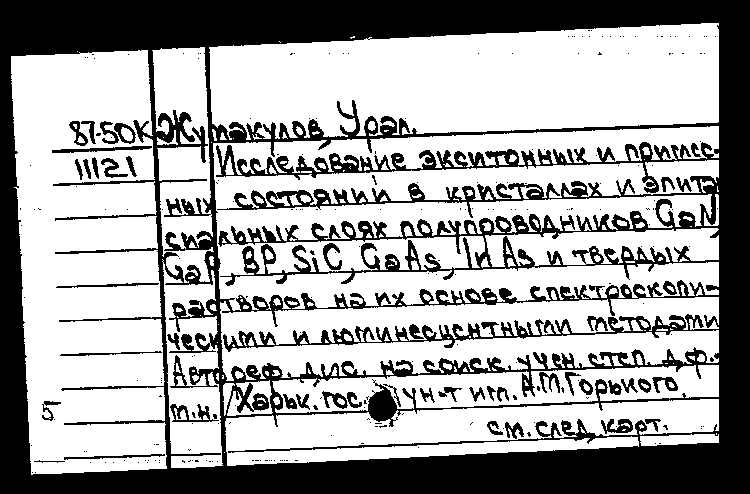 87-50К Жумакулов, Урал.
11121 Исследование экситонных и примес-
ных состояний в кристаллах и эпита
сиальных слоях полупроводников GaN,
GaP, BP, SiC, GaAs, InAs и твердых
растворов на их основе спектроскопи-
ческими и люминесцентными методами
Автореф. дис. на соиск. учен. степ. д.ф.-
м.н. /Харьк. гос. ун-т им. А.М.Горького.
5
см. след. карт.